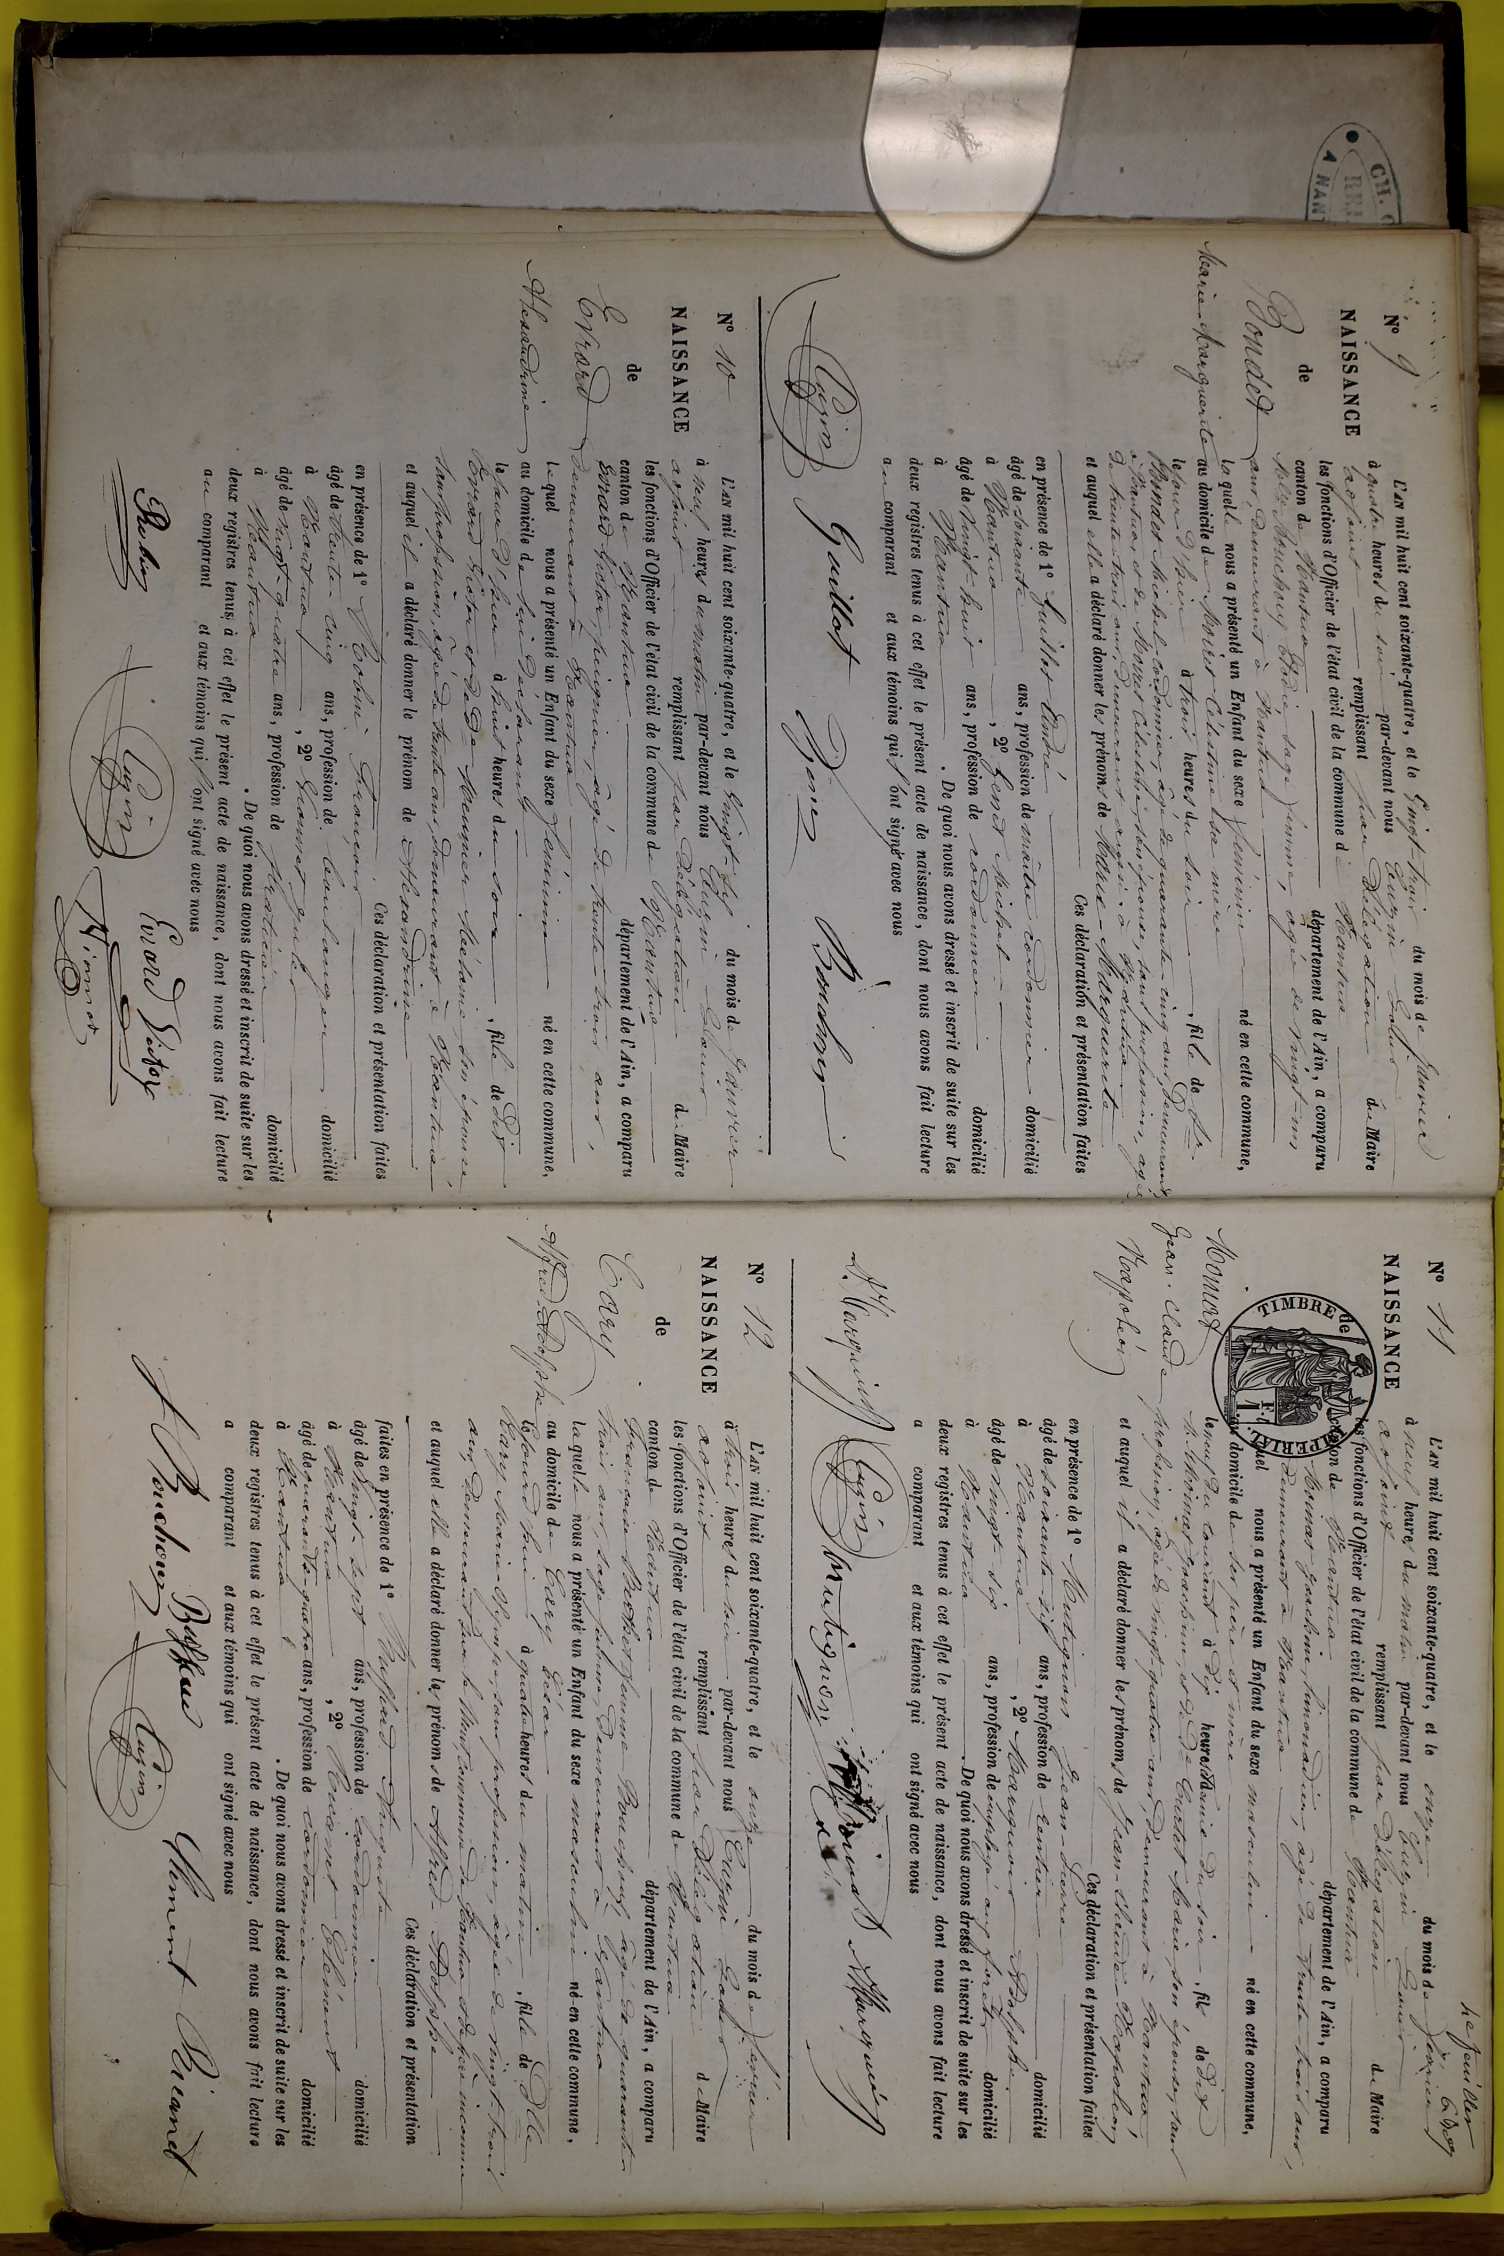 N° 9
NAISSANCE
de
Bondet
Marie-Marguerite
L'AN mil huit cent soixante-quatre, et le vingt trois du mois de Janvier
à quatre heures du soir par-devant nous
adjoint remplissant par Délégation du Maire
les fonctions d'Officier de l'état civil de la commune de Nantua
canton de Nantua département de l'Ain, a comparu
sage femme, agée de vingt
ans, demeurant à Nantua
laquelle nous a présenté un Enfant du sexe féminin né en cette commune,
au domicile de Moiret Célestine sa mère
le jour d'hier à trois heures du soir, fille de
Bondet Michel, cordonnier, âgé de quarante cinq ans, demeurant
à Nantua, et de Moiret Célestine, son épouse, sans profession, agée
de trente trois ans, demeurant aussi à Nantua
et auquel elle a déclaré donner les prénoms de Marie-Marguerite
Ces déclaration et présentation faites
en présence de 1° Guillot André
âgé de soixante ans, profession de maître cordonnier domicilié
à Nantua, 2° Genet Michel
âgé de vingt-huit ans, profession de cordonnier domicilié
à Nantua. De quoi nous avons dressé et inscrit de suite sur les
deux registres tenus à cet effet le présent acte de naissance, dont nous avons fait lecture
au comparant et aux témoins qui ont signé avec nous
Guillot
N° 10
NAISSANCE
de
Evrard
Alexandrine
L'AN mil huit cent soixante-quatre, et le vingt-six du mois de Janvier
à neuf heures du matin par-devant nous
adjoint remplissant par Délégation du Maire
les fonctions d'Officier de l'état civil de la commune de Nantua
canton de Nantua département de l'Ain, a comparu
Evrard Victor, peignier, âgé de trente-trois ans,
demeurant à Nantua
lequel nous a présenté un Enfant du sexe féminin né en cette commune,
au domicile de lui déclarant
le jour d'hier à huit heures du soir, fille de dit
Evrard Victor et de Mélanie, son épouse
sans profession, âgée de trente ans, demeurant à Nantua
et auquel il a déclaré donner le prénom de Alexandrine
Ces déclaration et présentation faites
en présence de 1° Robin François
âgé de trente-cinq ans, profession de boulanger domicilié
à Nantua, 2°
âgé de vingt-quatre ans, profession de domicilié
à Nantua. De quoi nous avons dressé et inscrit de suite sur les
deux registres tenus à cet effet le présent acte de naissance, dont nous avons fait lecture
au comparant et aux témoins qui ont signé avec nous
Robin Evrard Victor
N° 11
NAISSANCE
Jean-Claude
Napoléon
TIMBRE IMPÉRIAL
1 F.
L'AN mil huit cent soixante-quatre, et le onze du mois de février
à neuf heures du matin par-devant nous
adjoint remplissant par délégation du Maire
les fonctions d'Officier de l'état civil de la commune de Nantua
canton de Nantua département de l'Ain, a comparu
Joachim, limonadier, âgé de trente trois ans,
demeurant à Nantua
lequel nous a présenté un Enfant du sexe masculin né en cette commune,
au domicile de ses père et mère
le neuf du courant à dix heures du soir, fils de dit
Joachim, et de Marie, son épouse, sans
profession, agée de vingt-quatre ans, demeurant à Nantua
et auquel il a déclaré donner les prénoms de Jean-Claude-Napoléon
Ces déclaration et présentation faites
en présence de 1° Mutignon Jean-Pierre
âgé de soixante-six ans, profession de rentier domicilié
à Nantua, 2° Adolphe
âgé de vingt-six ans, profession de employé aux forêts domicilié
à Nantua. De quoi nous avons dressé et inscrit de suite sur les
deux registres tenus à cet effet le présent acte de naissance, dont nous avons fait lecture
a comparant et aux témoins qui ont signé avec nous
Mutignon
N° 12
NAISSANCE
de
Cary
Alfred Adolphe
L'AN mil huit cent soixante-quatre, et le onze du mois de février
à trois heures du soir par-devant nous
adjoint remplissant par Délégation du Maire
les fonctions d'Officier de l'état civil de la commune de Nantua
canton de Nantua département de l'Ain, a comparu
Françoise Berthet femme Bouchoux, âgée de quarante
trois ans, sage femme, demeurant à Nantua
laquelle nous a présenté un Enfant du sexe masculin né en cette commune,
au domicile de Cary
à quatre heures du matin, fils de Dlle
Cary Marie, sans profession, âgée de vingt-trois
ans
et auquel elle a déclaré donner les prénoms de Alfred-Adolphe
Ces déclaration et présentation
faites en présence de 1° Auguste
âgé de vingt-sept ans, profession de cordonnier domicilié
à Nantua, 2° Clément
âgé de quarante-quatre ans, profession de cordonnier domicilié
à Nantua. De quoi nous avons dressé et inscrit de suite sur les
deux registres tenus à cet effet le présent acte de naissance, dont nous avons fait lecture
a comparant et aux témoins qui ont signé avec nous
Bouchoux Clément